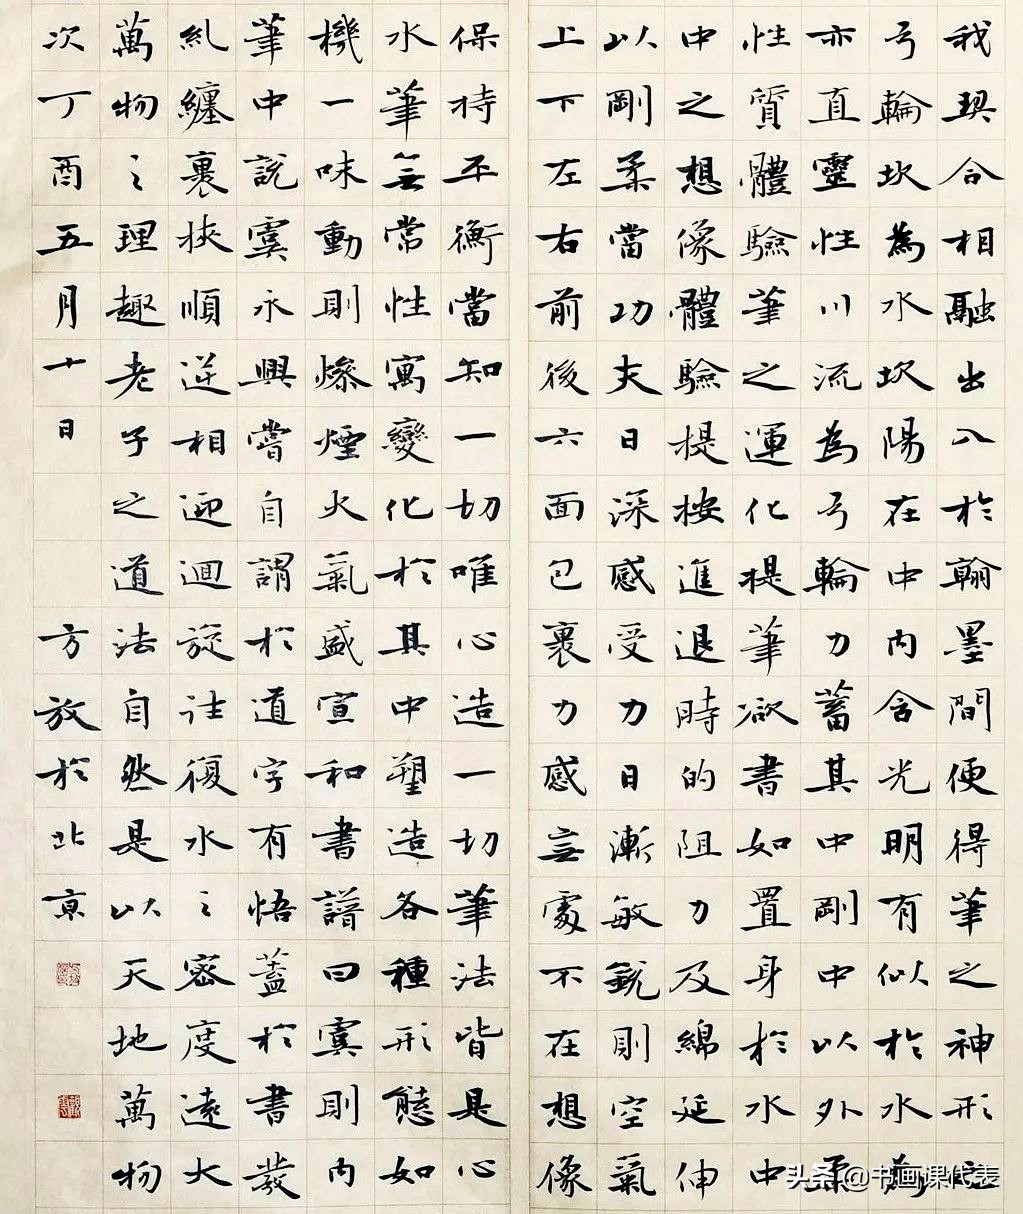 我契合相融出入於翰墨間便得筆之神形
弓輪坎為水坎陽在中內含光明有似於水為
亦直靈性川流為弓輪力蓄其中剛中以外柔
性質體驗筆之運化提筆欲書如置身於水中
中之想像體驗提按進退時的阻力及綿延伸
以剛柔當功夫日深感受力日漸敏銳則空氣
上下左右前後六面包裹力感無處不在想像
保持平衡當知一切唯心造一切筆法皆是心
水筆無常性寓變化於其中塑造各種形態如
機一味動則燥煙火氣盛宣和書譜曰虞則內
筆中說虞永興嘗自謂於道字有悟蓋於書發
糺纏裹挾順逆相迎迴旋往復水之密度遠大
萬物之理趣老子之道法自然是以天地萬物
次丁酉五月十日 方放於北京
头条 @书画课代表